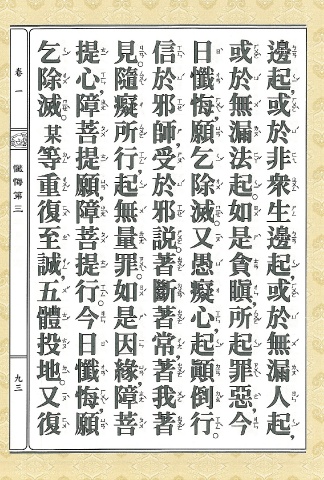 邊起，或於非衆生邊起，或於無漏人起，
或於無漏法起。如是貪瞋，所起罪惡，今
日懺悔，願乞除滅。又愚癡心，起顚倒行。
信於邪師，受於邪說。著斷著常，著我著
見。隨癡所行，起無量罪。如是因緣，障菩
提心，障菩提願，障菩提行。今日懺悔，願
乞除滅。某等重復至誠五體投地。又復
卷一
懺悔第三
九三